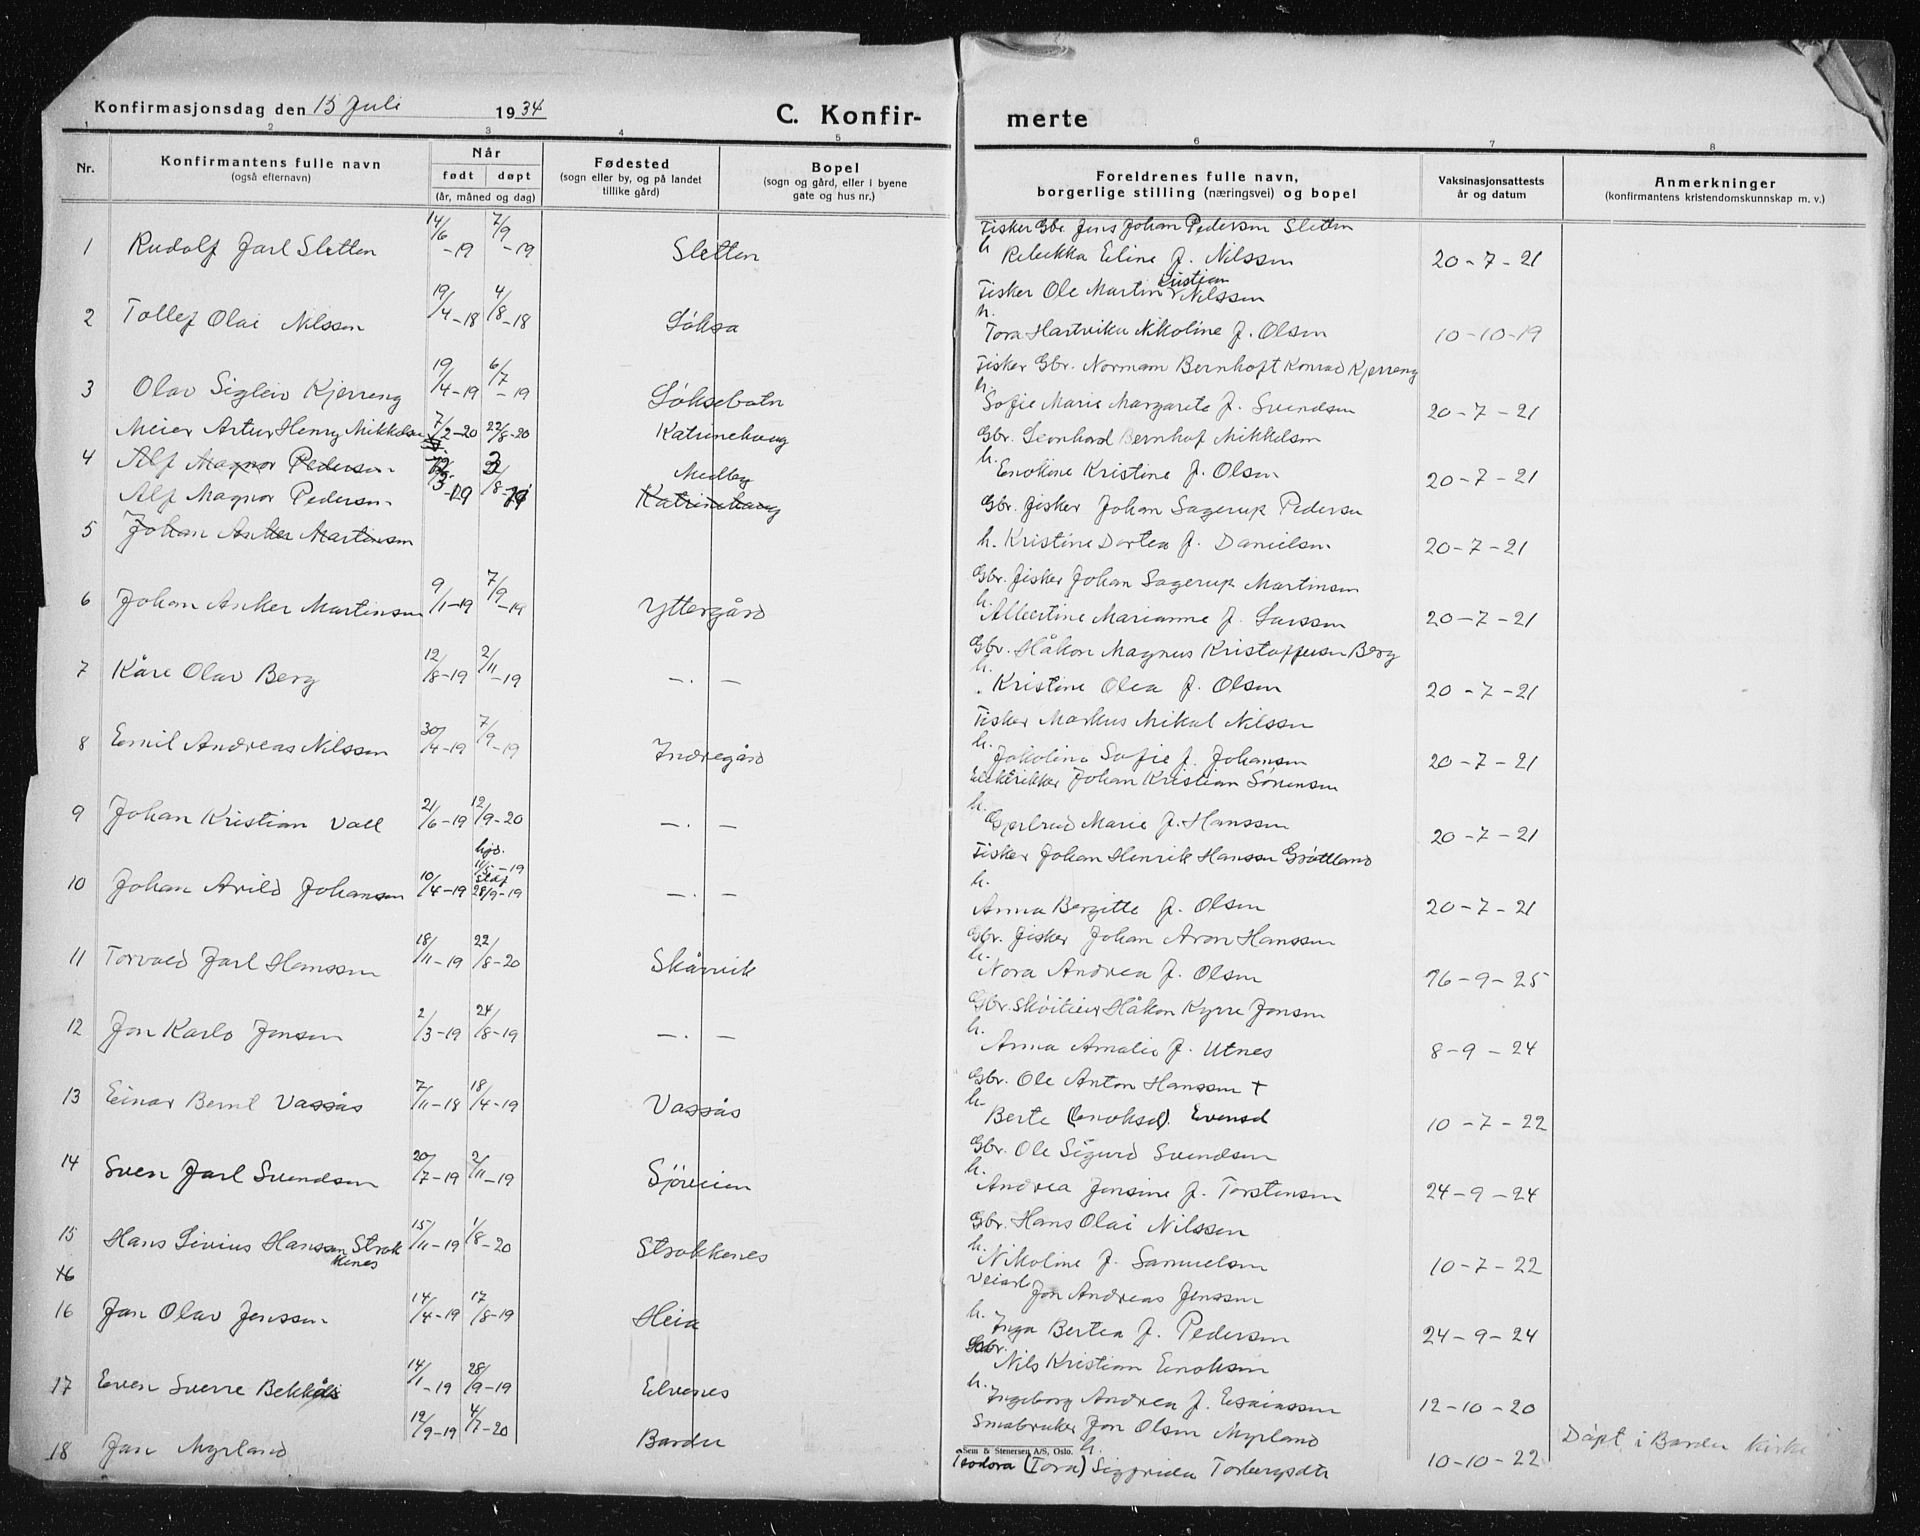 Konfirmasjonsdag den 15 Juli 1934
C. Konfirmerte
1 2 3 4 5 6 7 8
Nr.
Konfirmantens fulle navn
(også efternavn)
Når
født døpt
(år, måned og dag)
Fødested
(sogn eller by, og på landet
tillike gård)
Bopel
(sogn og gård, eller i byene
gate og hus nr.)
Foreldrenes fulle navn,
borgerlige stilling (næringsvei) og bopel
Vaksinasjonsattests
år og datum
Anmerkninger
(konfirmantens kristendomskunnskap m. v.)
1 Rudolf Jarl Sletten 14/6 -19 7/9 -19 Sletten
Fisker Gbr Jens Johan Pedersen Sletten
h. Rebekka Eline f. Nilssen 20-7-21
2 Tollef Olai Nilssen 19/4-18 4/8-18 Løksa
Fisker Ole Martin Kristian Nilssen
h. Tora Hartvika Nikoline f. Olsen 10-10-19
3 Olav Sigleiv Kjerreng 19/4-19 6/7-19 Løksebotn
Fisker Gbr. Normann Bernhoft Konrad Kjerreng
h. Sofie Marie Margarete f. Svendsen 20-7-21
4 Meier Artur Henry Mikkelsen 7/2-20 22/8-20 Katrinehaug
Alf Magnor Pedersen
Gbr. Leonhard Bernhof Mikkelsen
h. Enokine Kristine f. Olsen 20-7-21
5 Alf Magnor Pedersen Medby
Katrinehaug
Johan Anker Martinsen
Gbr. fisker Johan Sagerup Pedersen
h. Kristine Dortea f. Danielsen 20-7-21
6 Johan Anker Martinsen 9/1-19 7/9-19 Yttergård
Gbr. fisker Johan Sagerup Martinsen
h. Albertine Marianne f. Larssen 20-7-21
7 Kåre Olav Berg 12/8-19 2/11-19 —.—
Gbr. Håkon Magnus Kristoffersen Berg
h. Kristine Olea f. Olsen 20-7-21
8 Emil Andreas Nilssen 30/4-19 7/9-19 Indregård
Fisker Markus Mikal Nilssen
h. Jakolina Sofie f. Johansen 20-7-21
9 Johan Kristian Voll 21/6-19 12/9-20 —.—
Elektrikker Johan Kristian Sørensen
h. Gjertrud Marie f. Hanssen 20-7-21
10 Johan Arild Johansen 10/4-19 hjd. 11/5-19 stdf 28/9-19 —.—
Fisker Johan Henrik Hanssen Grøttland
h. Anna Bergitte f. Olsen 20-7-21
11 Torvald Jarl Hanssen 18/11-19 22/8-20 Skårvik
Gbr. fisker Johan Aron Hanssen
h. Nora Andrea f. Olsen 16-9-25
12 Jon Karlo Jensen 2/3-19 24/8-19 —.—
Gbr. Håkon Kyrre Jonsen
h. Anna Amalie f. Utnes 8-9-24
13 Einar Bernt Vassås 7/11-18 18/4-19 Vassås
Gbr. Ole Anton Hanssen +
h. Berte (Enoksd). Evensd 10-7-22
14 Sven Jarl Svendsen 20/7-19 2/11-19 Sjøveien
Gbr. Ole Sigurd Svendsen
h. Andrea Jensine f. Torstensen 24-9-24
15 Hans Livius Hanssen Strokkenes 15/11-19 1/8-20 Strokkenes
Gbr. Hans Olai Nilssen
h. Nikoline f. Samuelsen 10-7-22
16
16 Jan Olav Jenssen 14/4-19 17/8-19 Heia
Veiarb Jon Andreas Jenssen
h. Inga Bertea f. Pedersen 24-9-24
17 Even Sverre Bekkås 14/1-19 28/9-19 Elvenes
Gbr. Nils Kristian Enoksen
h. Ingeborg Andrea f. Esaiassen 12-10-20
18 Jan Myrland 12/9-19 4/7-20 Bardu
Småbruker Jon Olsen Myrland
Sem & Stenersen A/S, Oslo.
h. Teodora (Tora) Sigfrida Torbergsdtr 10-10-22
Døpt i Bardu kirke